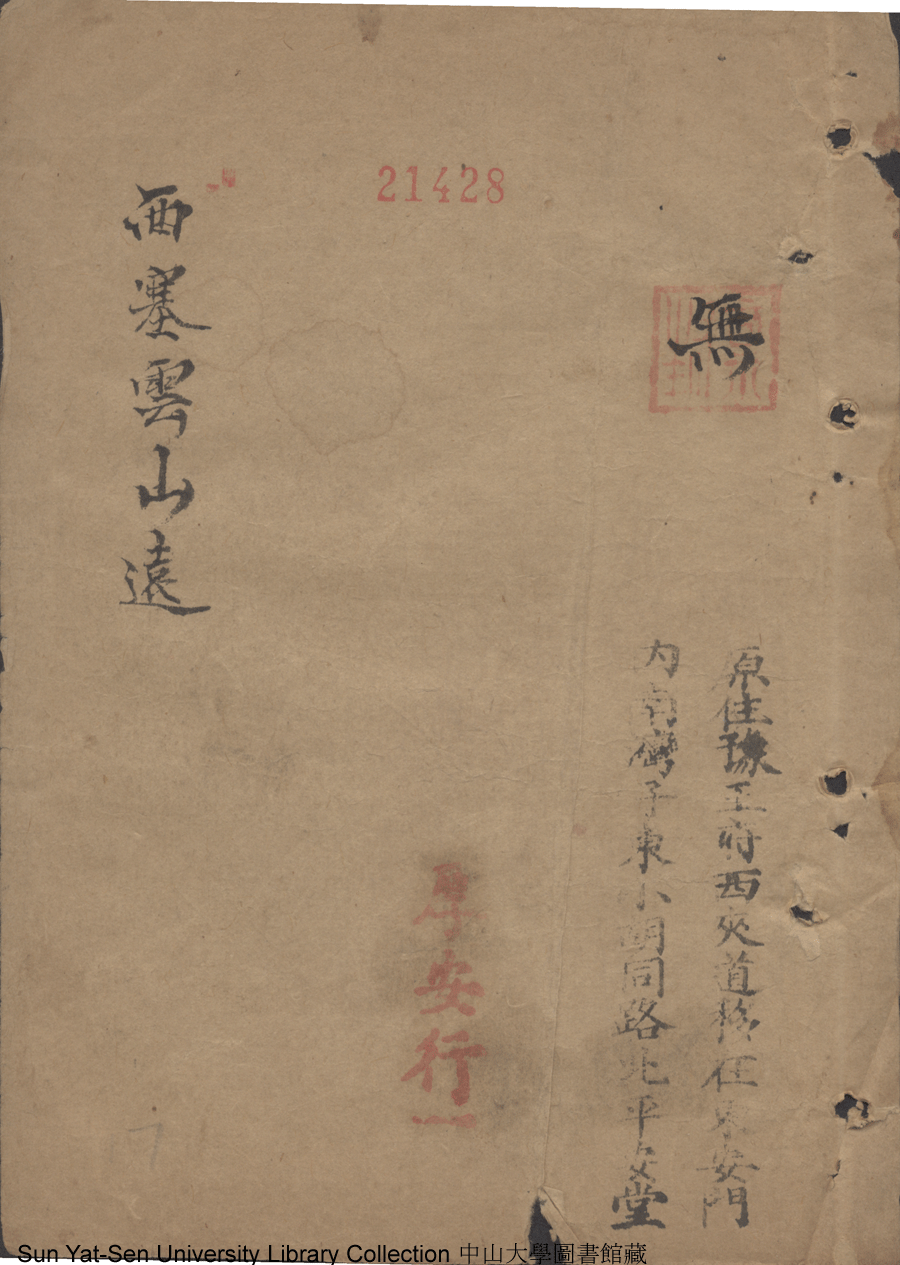 21428
無
原住豫王府西夾道移在東安門
内南灣子東小胡同路北平安堂
安行
西塞雲山遠
Sun Yat-Sen University Library Collection 中山大學圖書館藏